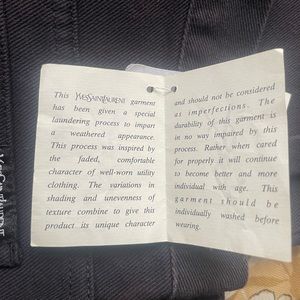 This YVESSAINTLAURENT garment
has been given a special
laundering process to impart
a weathered appearance.
This process was inspired by
the faded, comfortable
character of well-worn utility
clothing. The variations in
shading and unevenness of
texture combine to give this
product its unique character
and should not be considered
as imperfections. The
durability of this garment is
in no way impaired by this
process. Rather when cared
for properly it will continue
to become better and more
individual with age. This
garment should be
individually washed before
wearing.